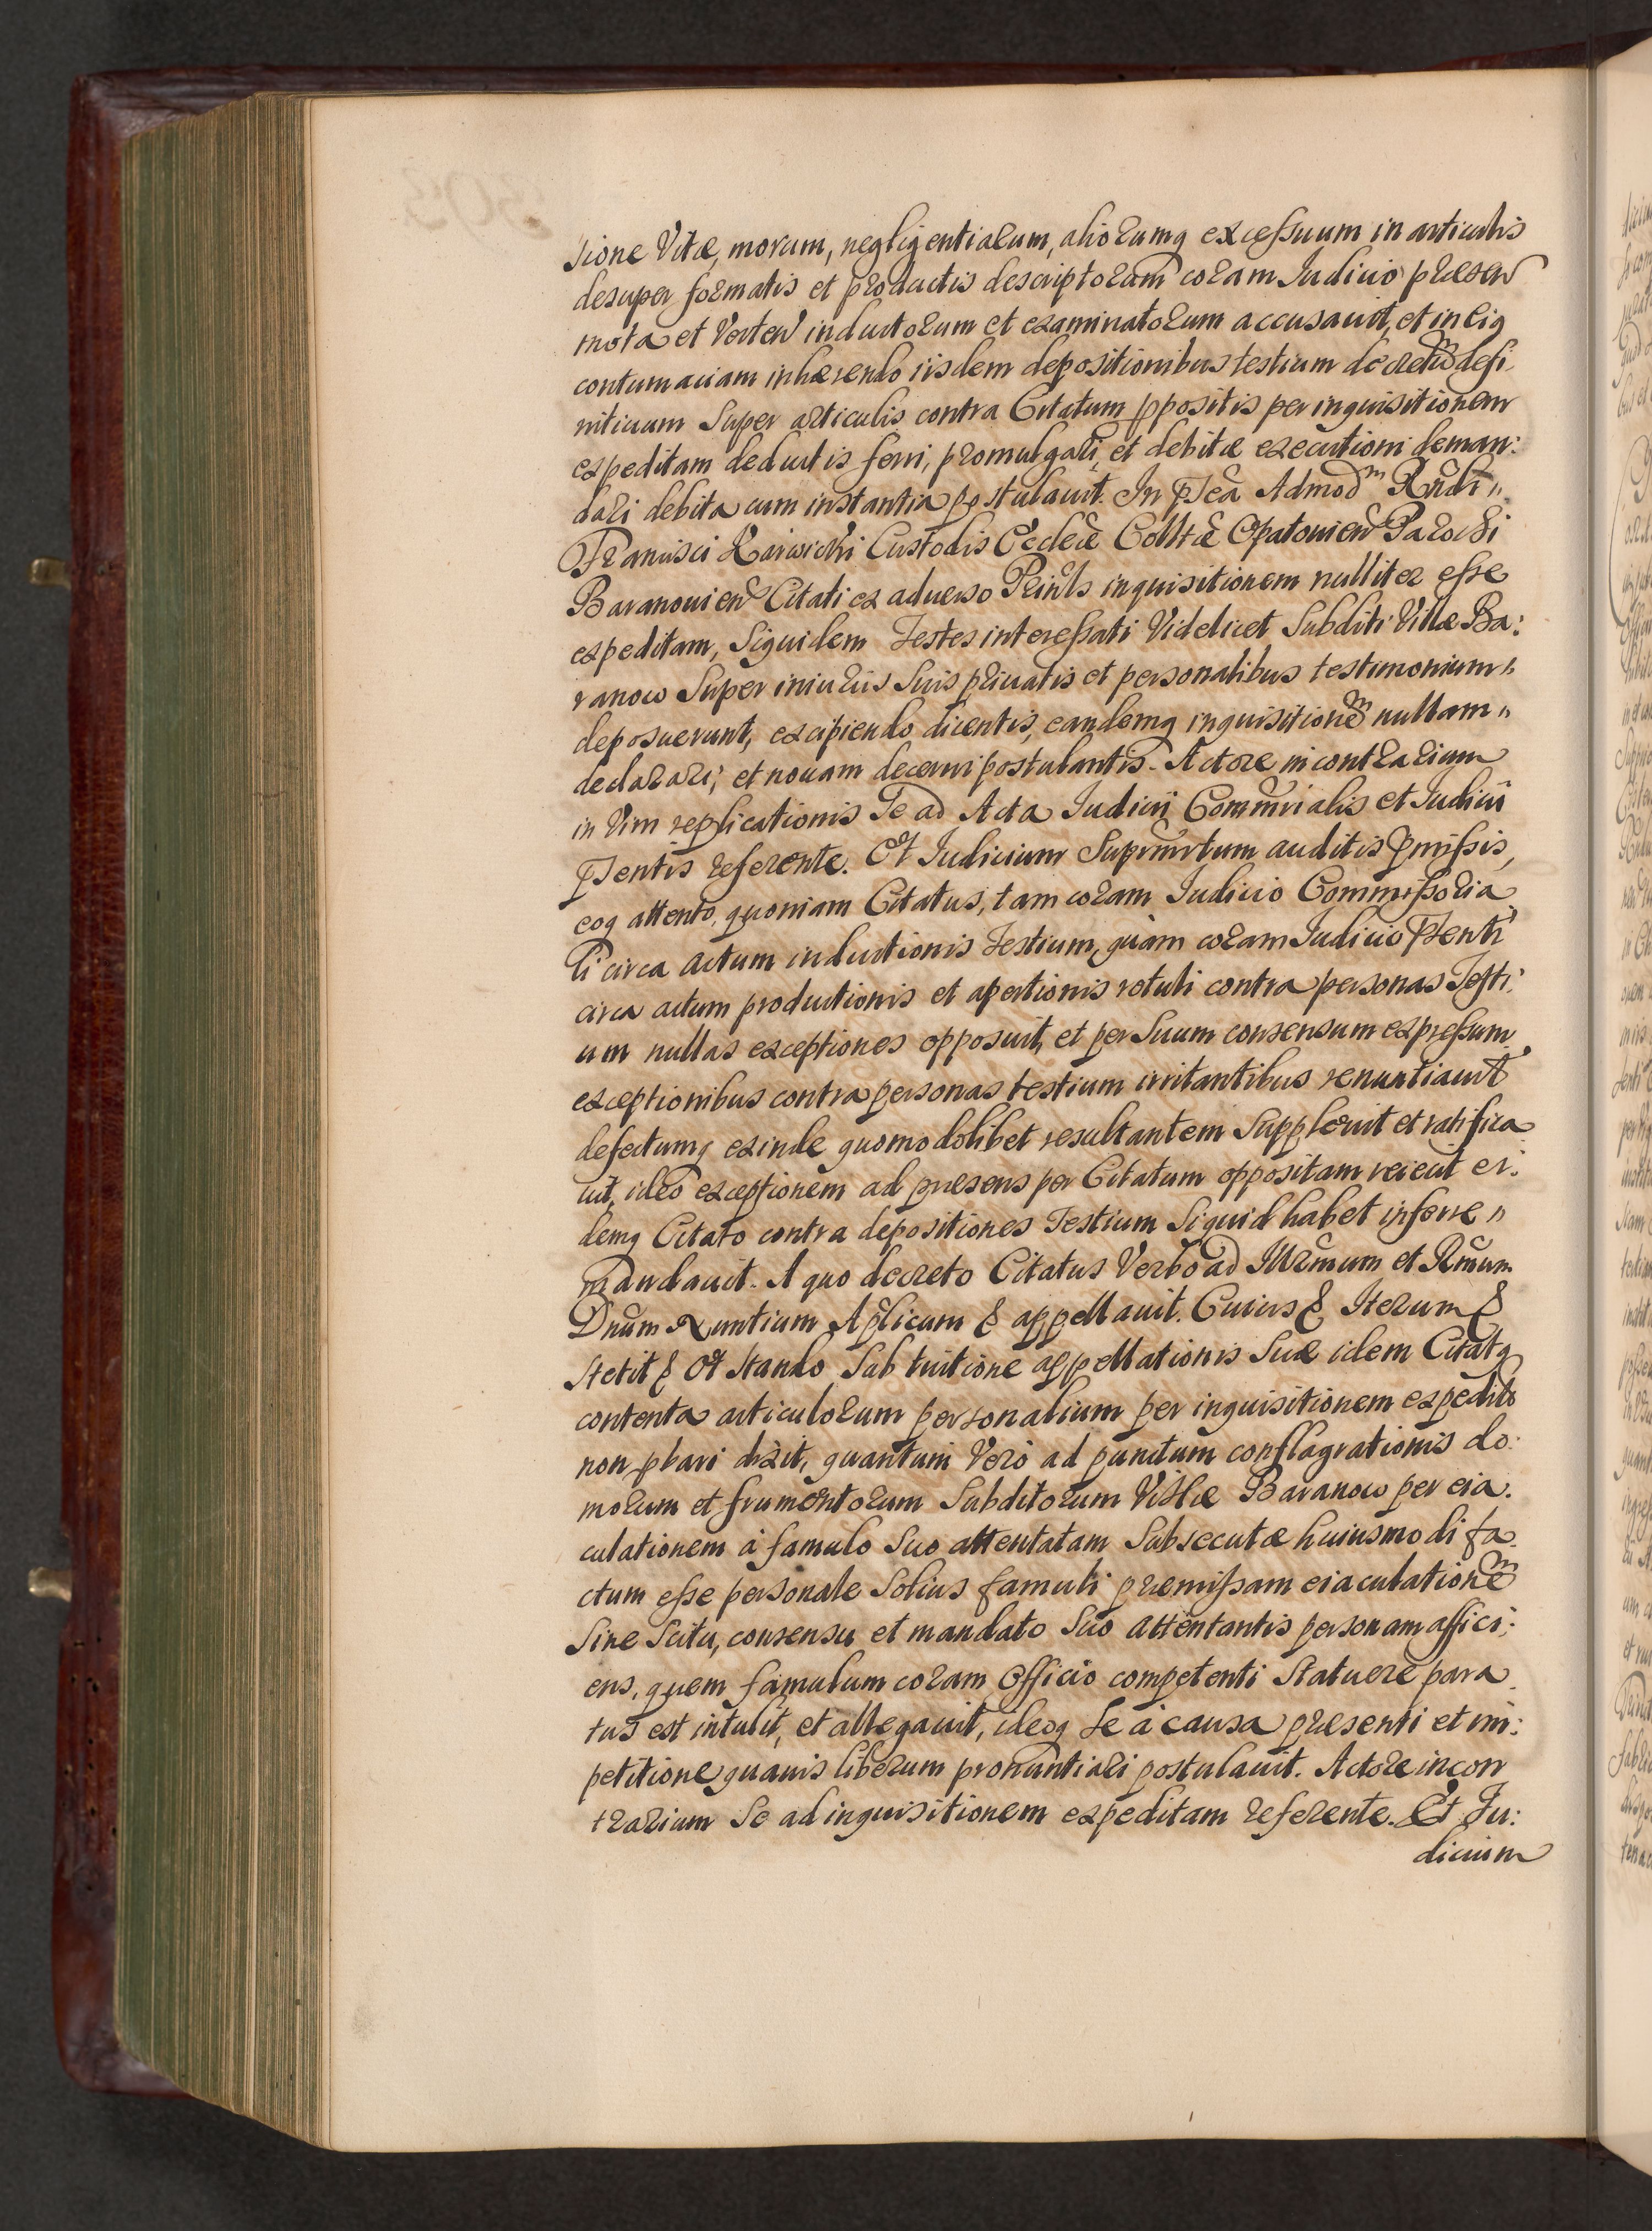 sione Vitæ, morum, negligentiarum, aliorumq excessuum in articulis
desuper formatis et productis descriptorum coram Judicio præsen
mota et Verten inductorum et examinatorum accusavit, et in eiq
contumaciam inhærendo iisdem depositionibus testium decretũ defi:
nitiuum super articulis contra Citatum ppositis per inquisitionem
expeditam deductis ferri, promulgari, et debitæ executioni deman:
dari debita cum instantia postulauit. In pñtia Admodm Rndi
Francisci Karwicki Custodis Eccleæ Colltæ Opatouien Parochi
Baranouien Citati ex aduerso Principalis inquisitionem nulliter esse
expeditam, siquidem Testes interessati Videlicet Subditi Villæ Ba:
ranow super iniurijs suis priuatis et personalibus testimonium
deposuerunt, excipiendo dicentis, eandemq inquisitionẽm nullam
declarari; et nouam decerni postulantis. Actore in contrarium
in Vim replicationis se ad Acta Judicij Commrialis et Judicii
pntis referente. Et Judicium Suprmrtum auditis pmissis,
eoq attento, quoniam Citatus, tam coram Judicio Commissoria
li circa actum inductionis Testium, quàm coram Judicio pnti
circa actum productionis et apertionis rotuli contra personas Testi:
um nullas exceptiones opposuit, et per suum consensum expressum
exceptionibus contra personas testium irritantibus renuntiauit
defectumq exinde quomodolibet resultantem suppleuit et ratifica
uit, ideo exceptionem ad præsens per Citatum oppositam reiecit ei:
demq Citato contra depositiones Testium siquid habet inferre
mandauit. A quo decreto Citatus Verbo ad Illrmum et Rmum
Dnum Nuntium Aplicum & appellauit. Cuius & Iterum &
stetit & Et stando sub tuitione appellationis suæ idem Citatq
contenta articulorum personalium per inquisitionem expeditã
non pbari dixit, quantum Verò ad punctum conflagrationis do:
morum et frumentorum Subditorum Villæ Baranow per eia:
culationem à famulo suo attentatam subsecutæ huiusmodi fa:
ctum esse personale solius famuli præmissam eiaculationẽm
sine scitu, consensu et mandato suo attentantis personam affici:
ens, quem famulum coram Officio competenti statuere para
tus est intulit, et allegauit, ideoq se à causa præsenti et im:
petitione quauis liberum pronuntiari postulauit. Actore in con
trarium se ad inquisitionem expeditam referente. Et Ju:
dicium